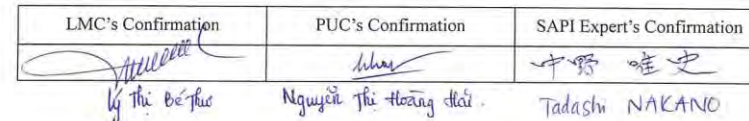 LMC's Confirmation PUC's Confirmation SAPI Expert's Confirmation
中野 唯史
Lý Thi Bé Thu Nguyễn Thi Hoàng Hải. Tadashi NAKANO